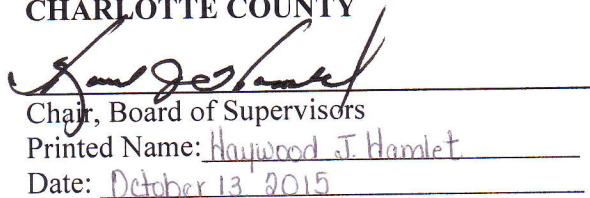 CHARLOTTE COUNTY
Chair, Board of Supervisors
Printed Name: Haywood J. Hamlet
Date: October 13 2015